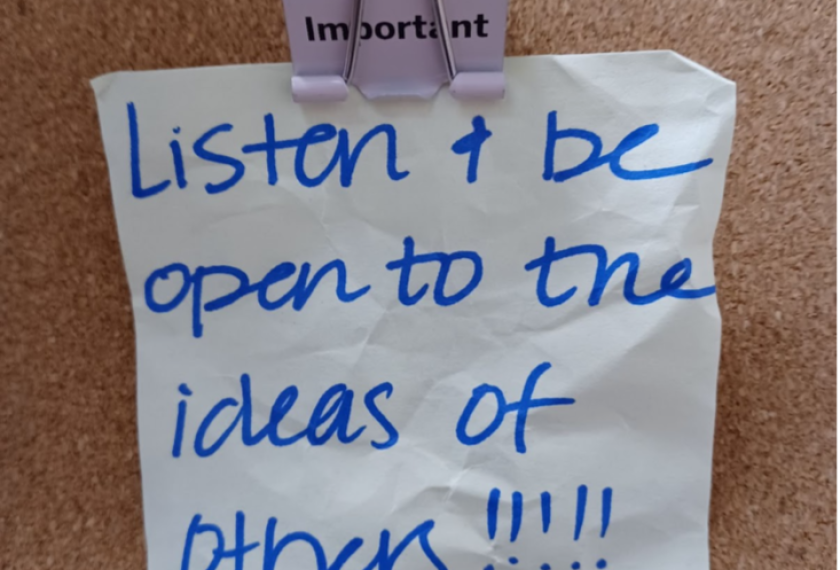 Important
Listen & be
open to the
ideas of
others !!!!!